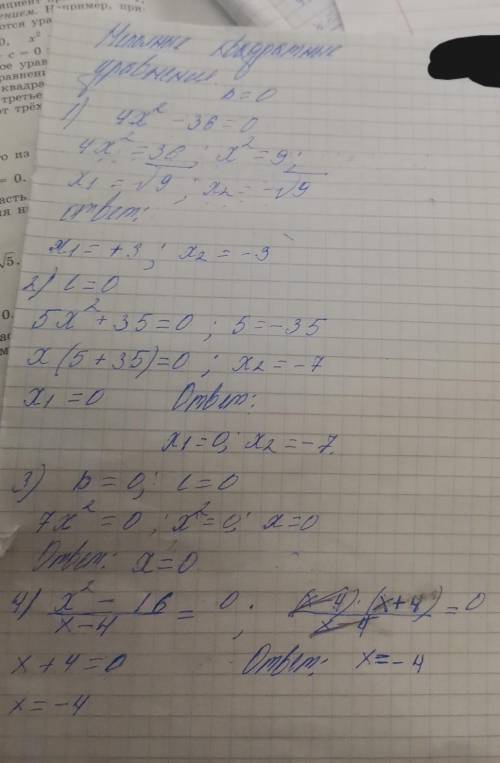 ением. Например, при-
Неполные квадратные
уравнение
b=0
1) 4x² - 36 = 0
4x² = 36 ; x² = 9 ;
x1 = √9 ; x2 = -√9
ответ:
x1 = +3 ; x2 = -3
2) c=0
5x² + 35 = 0 ; 5 = -35
x(5 + 35) = 0 ; x2 = -7
x1 = 0 Ответ:
x1 = 0; x2 = -7.
3) b = 0; c = 0
7x² = 0 ; x² = 0; x = 0
Ответ: x = 0
4) (x² - 16)/(x - 4) = 0 ; ((x-4)·(x+4))/(x-4) = 0
x + 4 = 0 Ответ: x = -4
x = -4